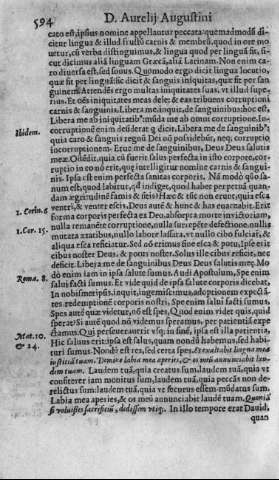 594 D. Aurelij Augustini
cato est, ipsius nomine appellantur peccata: quemadmodũ di-
citur lingua & illud
uetur, cũ verba distinguimus, & lingua quod per linguã fit, si-
cut dicimus aliã linguam Græcã, aliã Latinam. Non enim ca-
ro diuersa est, sed sonus. Quomodo ergo dicit lingua locutio,
quæ fit per linguã: sic dicit & sanguis iniquitas, quæ fit per san
guinem. Attendẽs ergo multas iniquitates suas, vt illud supe-
rius, Et oẽs iniquitates meas dele; & eas tribuens corruptioni
carnis & sanguinis. Libera me inquit, de sanguinibus: hoc est,
Libera me ab iniquitatib⁹: mũda me ab omni corruptione. In-
Ibidem.
corruptionẽ enim desiderat q̃ dicit, Libera me de sanguinib⁹:
quia caro & sanguis regnũ Dei nõ possidebit, neq; corruptio
incorruptionem. Erue me de sanguinibus, Deus Deus salutis
meæ. Ostẽdit, quia cũ fuerit salus perfecta in isto corpore, cor-
ruptio in eo nõ erit, quæ intelligitur nomine carnis & sangui-
nis. Ipsa est enim perfecta sanitas corporis.
num est, quod labitur, qđ indiget, quod habet perpetuã quan-
dam ægritudinẽ famis & sitis? Hæc
1. Corin. 6
venter, & venter escis, Deus autẽ & hunc & has euacuabit. Erit
forma corporis perfecta ex Deo, absorpta morte in victoriam,
1. Cor. 15.
nulla remanẽte corruptione, nulla subrepẽte defectione, nullis
mutata ætatibus, nullo labore lassata, vt
aliqua esca reficiatur. Sed nõ erimus sine esca & potu, Ipse erit
cibus noster Deus, & potus noster. Solus ille cibus reficit, nec
deficit. Libera me de sanguinibus Deus Deus salutis meę. Mo
dò enim iam in ipsa salute sumus. Audi Apostolum, Spe enim
Roma. 8.
salui facti sumus. Et vide quid de ipsa salute corporis dicebat,
In nobismetipsis, inquit, ingemiscimus, adoptionem expectã-
tes, redemptionẽ corporis nostri, Spe enim salui facti sumus.
Spes autẽ quæ videtur, nõ est spes, Quod enim videt quis, quid
sperat? Si autẽ quod nõ videmus speramus, per patientiã expe
ctamus. Qui perseuerauerit vsq; in finẽ,
Mat. 10.
& 24.
Hic saluus erit: ipsa est salus, quam nondũ habemus, sed habi-
turi sumus. Nondũ est res, sed certa spes. Et exaltabit lingua mea
iustitiã tuam. Domine labia mea aperies, & os meũ annunciabit lau
dem tuam. Laudem tuã, quia creatus sum: laudem tuã, quia
laudem tuã, quia
laudem tuã, quia vt
Labia mea aperies, & os meũ annunciabit laudẽ tuam. Quoniã
si voluisses sacrificiũ, dedissem vtiq;. In illo tempore erat Dauid,
quan